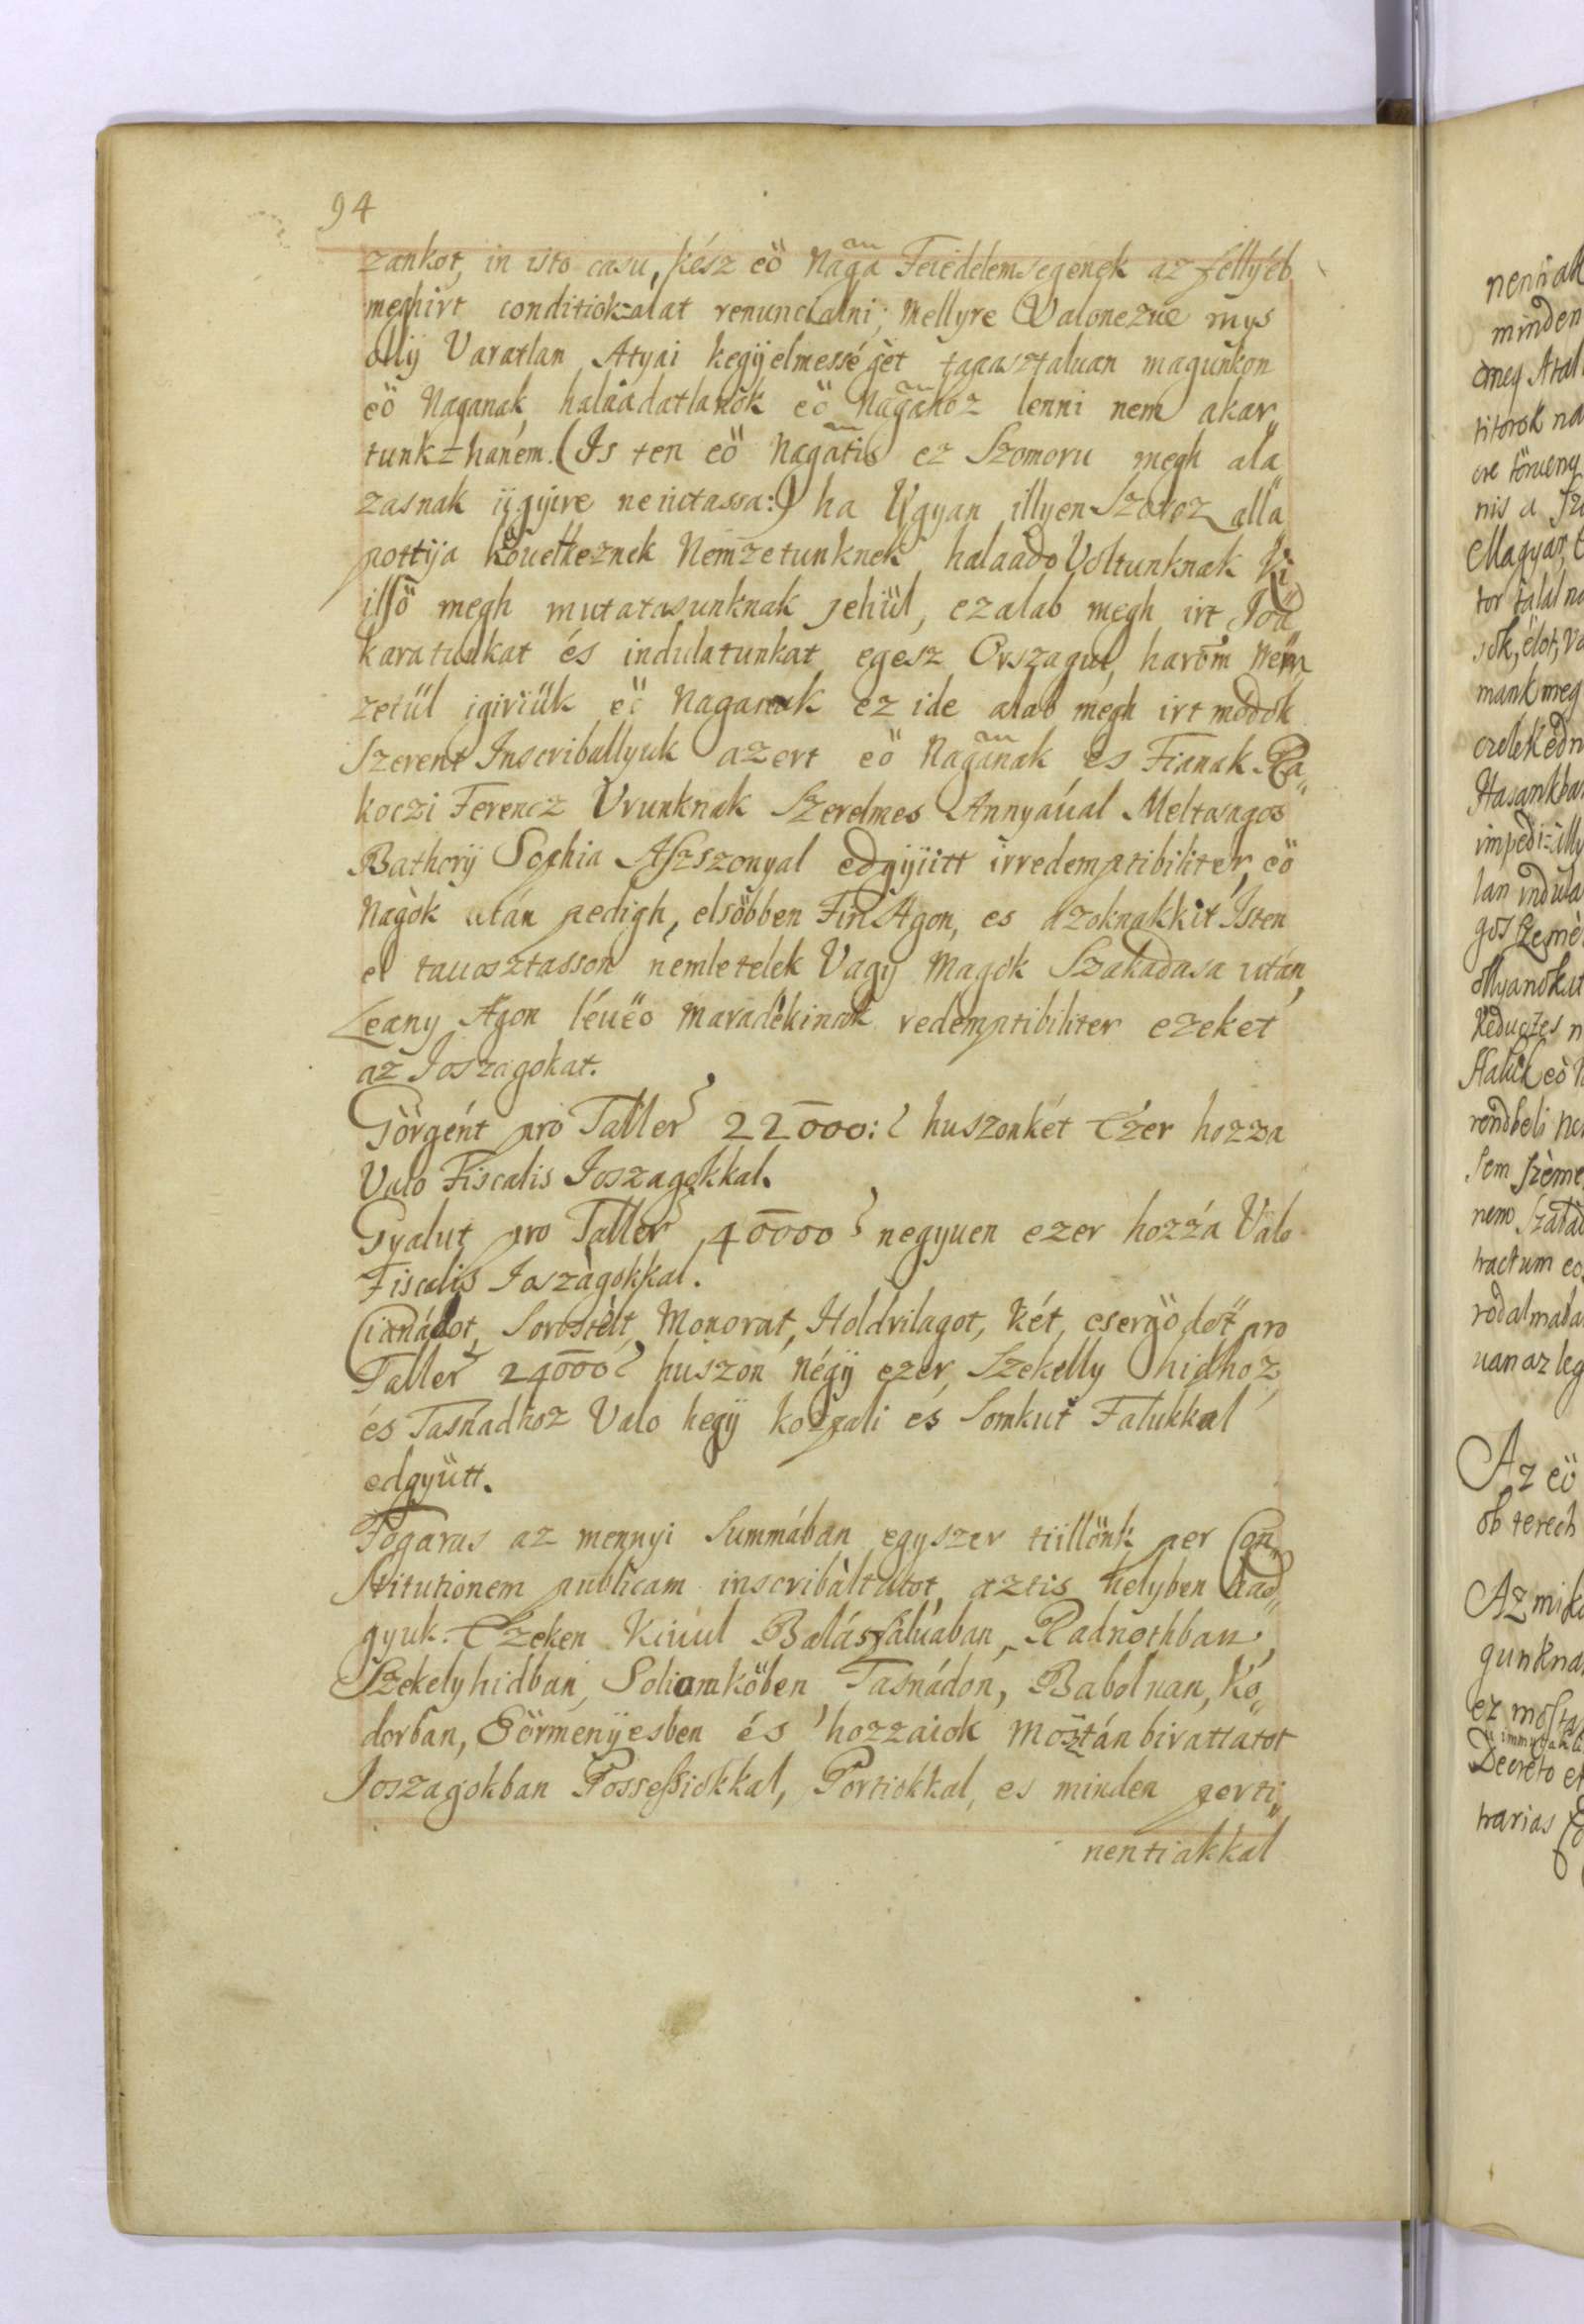 94
zankot, in isto casu, kész eö Naga Feiedelemsegenek az fellyéb
meghirt conditiok=alat renunciálni; Mellyre Valonezue mys
olly Varatlan Atyai kegyelmességèt tapasztaluan magunkon
eö Naganak, haláadatlanok eö Nagahoz lenni nem akar„
tunk=hanem. (Is ten eö Nagatis ez Szomoru megh ala„
zasnak ügyire ne iuctassa:) ha Ugyan illyen Szoros alla„
pottya köuetkeznek Nemzetunknek, halaado Voltunknak Ki„
illö megh mutatasunknak jehül, ez alab megh irt Joa„
karatunkat és indulatunkat, egesz Orszagul, harom Nem„
zetül igiriük eö Naganak ez ide alab megh irt modok
Szerent Inscriballyuk azert eö Naganak es Fianak Ra„
koczi Ferencz Urunknak Szerelmes Annyaúal Meltasagos
Bathory Sophia Aszszonyal edgyütt irredemptibiliter, eö
Nagòk után pedigh, elsöbben Fiu Agon, es azoknak kit Isten
el tauosztasson nemletelek Vagy Magok Szakadasa után,
Leany Agon léuëo Maradékinak redemptibiliter ezeket
az Joszagokat.
Görgént pro Taller 22000: huszonkét Ezer hozza
Valo Fiscalis Joszagokkal.
Gyalut pro Taller 40000 negyuen ezer hozzá Valo
Fiscalis Joszàgokkal.
Cianádot, Sorostélt, Monorat, Holdvilagot, két, csergödöt pro
Taller 24000 huszon négy ezer, Szekelly hidhoz,
és Tasnadhoz Valo hegy kozpali és Somkut Falukkal
edgyütt.
Fogaras az mennyi Summában egyszer tüllönk per Con„
stitutionem publicam inscribàltatot, aztis helyben had„
gyuk. Ezeken Kiuul Balásfaluaban, Radnothban,
Szekelyhidban, Soliomköben, Tasnádon, Babolnan, Kò„
dorban, Eörmenyesben és hozzaiok Mostán birattatot
Joszagokban Possessiokkal, Portiokkal, es minden perti„
nentiakkal